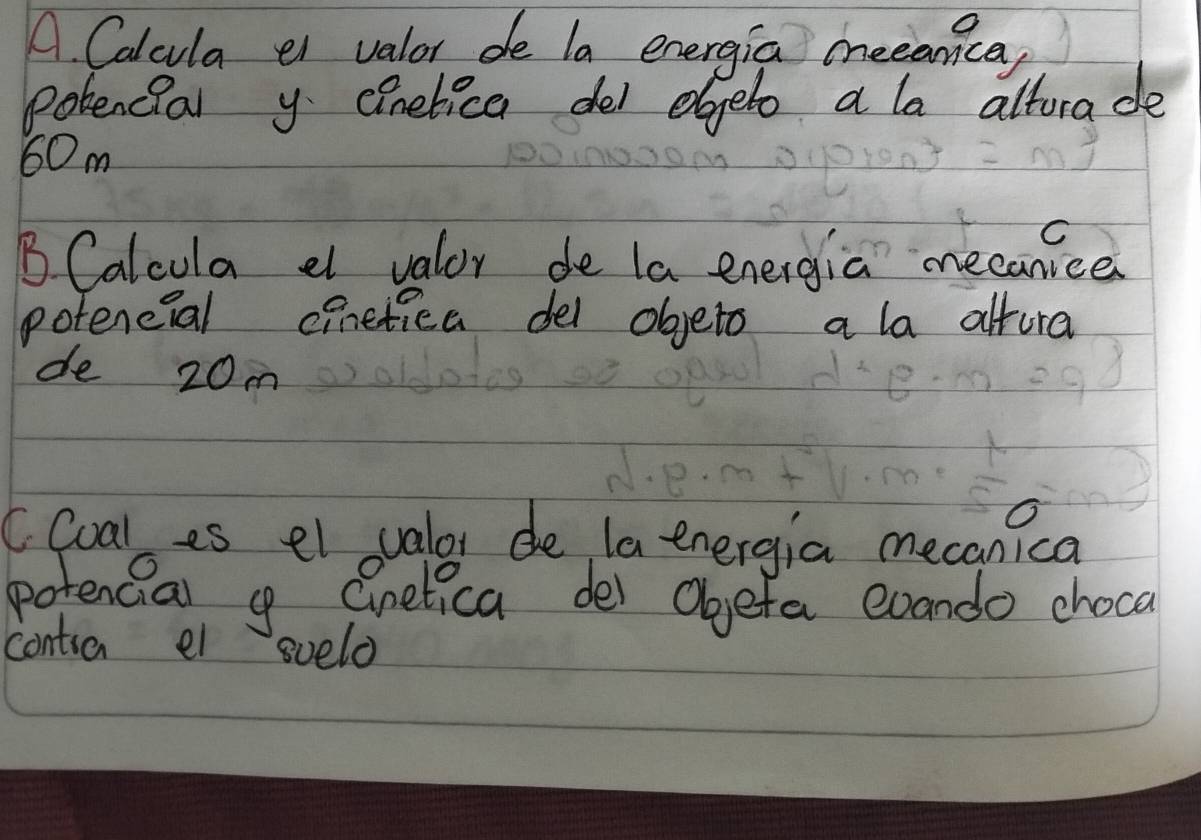 A. Calcula el valor de la energía mecanica,
potencial y cinetica del objeto a la altura de
60 m
B. Calcula el valor de la energía mecanica
potencial cinetica del objeto a la altura
de 20 m
C. Coal es el valor de la energía mecanica
potencial y cinetica del objeta cuando choca
contra el suelo